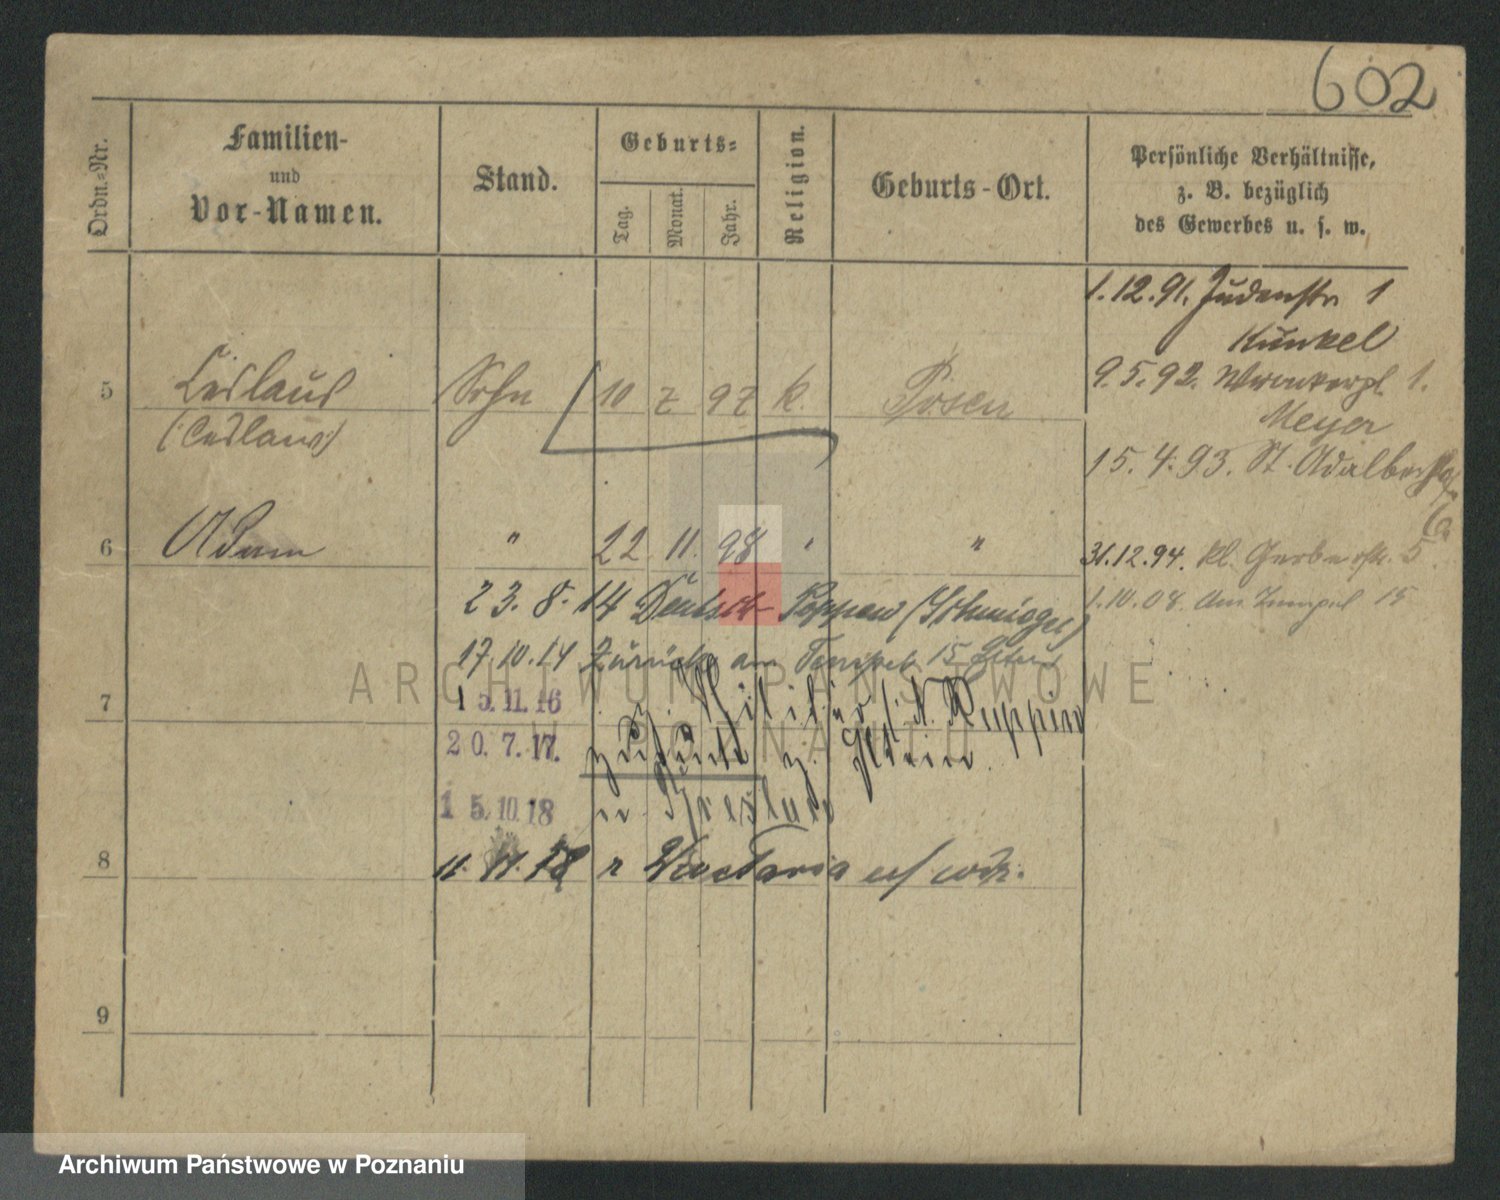 602
Ordn.-Nr.
Familien-
und
Vor-Namen.
Stand.
Geburts-
Tag.
Monat.
Jahr.
Religion.
Geburts-Ort.
Persönliche Verhältnisse,
z. B. bezüglich
des Gewerbes u. s. w.
1.12.91. Judenstr 1
Kunkel
5 Ceslaus Sohn 10 7 97 k. Posen
(Ceslaus)
9.5.92. Wronkerpl. 1.
Meyer
15.4.93. St. Adalbert
6 Adam " 22 11. 98 " "
31.12.94. Kl. Gerberstr. 5
23.8.14 Deutsch Poppen (Schmiegel)
1.10.08. Am Tempel 15
17.10.14 Zurück am Tempel 15 Eltern
7
15.11.16 z. Militär N. Ruppin
20.7.17. zurück
15.10.18 n. Breslau
8
11.11.18 n
9
ARCHIWUM PAŃSTWOWE
POZNANIU
Archiwum Państwowe w Poznaniu